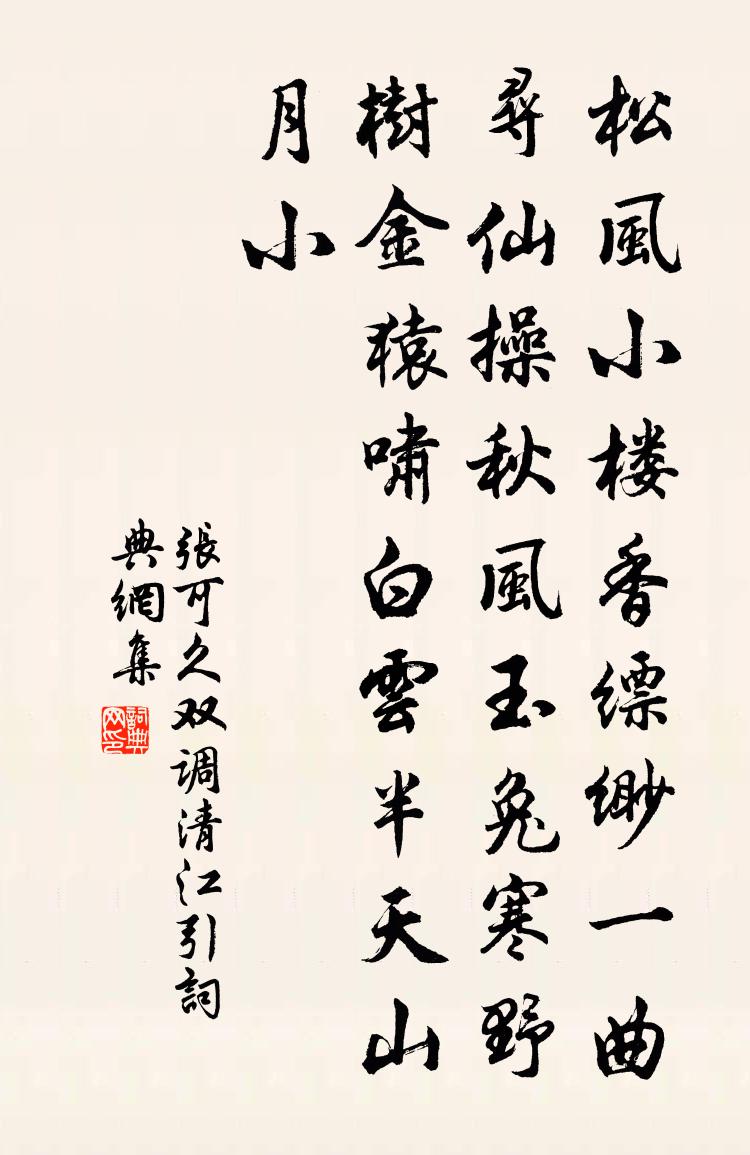 松風小楼香缥缈一曲
尋仙操秋風玉兔寒野
樹金猿啸白雲半天山
月小
張可久双调清江引詞
典網集
詞典网印